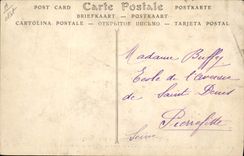 POST CARD Carte Postale POSTKARTE
BRIEFKAART — POSTKAART
CARTOLINA POSTALE — ОТКРЫТОЕ ПИСЬМО — TARJETA POSTAL
Madame Buffy
Ecole de l'Avenue
de Saint Denis
Pierrefitte
Seine